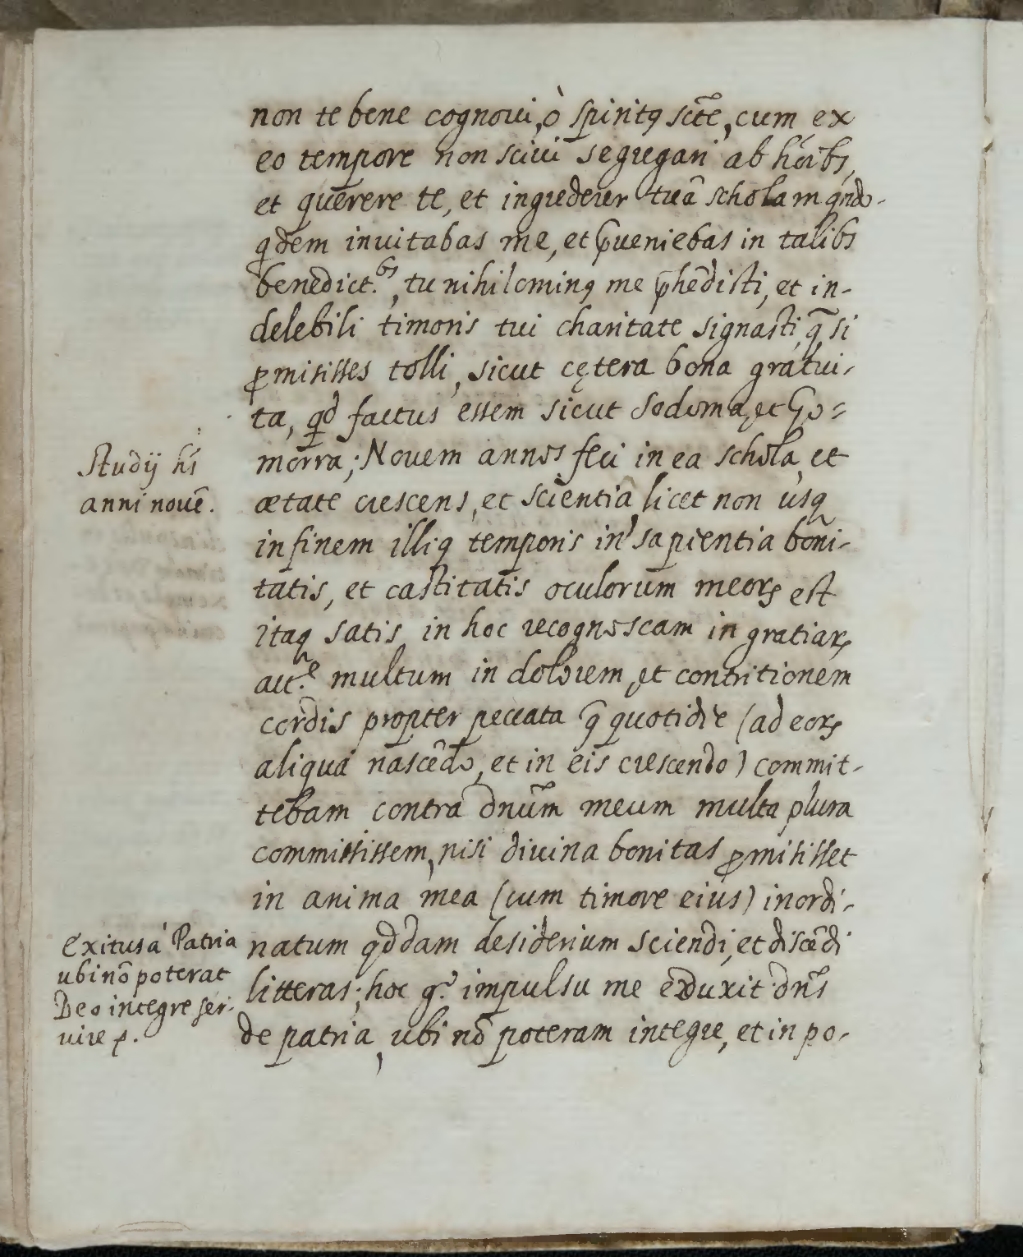 non te bene cognoui, ò spiritꝰ scte̅, cum ex
eo tempore non sciui segregari ab ho̅ibꝫ,
et querere te, et ingrederer tua̅ scholam qn̅do-
qdem inuitabas me, et p̅ueniebas in talibꝫ
benedict.bꝫ, tu nihilominꝰ me p̅he̅disti, et in-
delebili timoris tui charitate signasti, q̅ si
ꝑmisisses tolli, sicut cętera bona gratui-
ta, qd̅ factus essem sicut Sodoma, et Go=
morra; Nouem annos feci in ea schola, et
ætate crescens, et scientia licet non usq̅
in finem illiꝰ temporis in sapientia boni-
tatis, et castitatis oculorum meorꝝ est
itaq̅ satis, in hoc recognoscam in gratiarꝝ
act.e multum in dolorem, et contritionem
cordis propter peccata q̅ quotidie (ad eorꝝ
aliqua nasce̅do, et in eis crescendo) commit-
tebam contra dn̅um meum multa plura
commisissem, nisi diuina bonitas ꝑmisisset
in anima mea (cum timore eius) inordi-
natum qddam desiderium sciendi, et disce̅di
litteras; hoc g.º impulsu me eduxit dn̅s
de patria, ubi no̅ poteram integre, et in po-
Studij hi
anni noue̅.
Exitus á Patria
ubi no̅ poterat
Deo integre ser-
uire ꝑ.